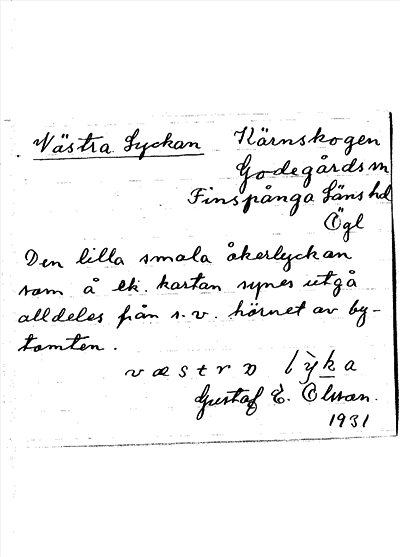 Västra Lyckan Kärnskogen
Godegårds sn
Finspånga Läns hd
Ögl
Den lilla smala åkerlyckan
som å ek. kartan synes utgå
alldeles från s.v. hörnet av by-
tomten.
væstrɔ lỳka
Gustaf E. Olsson.
1931